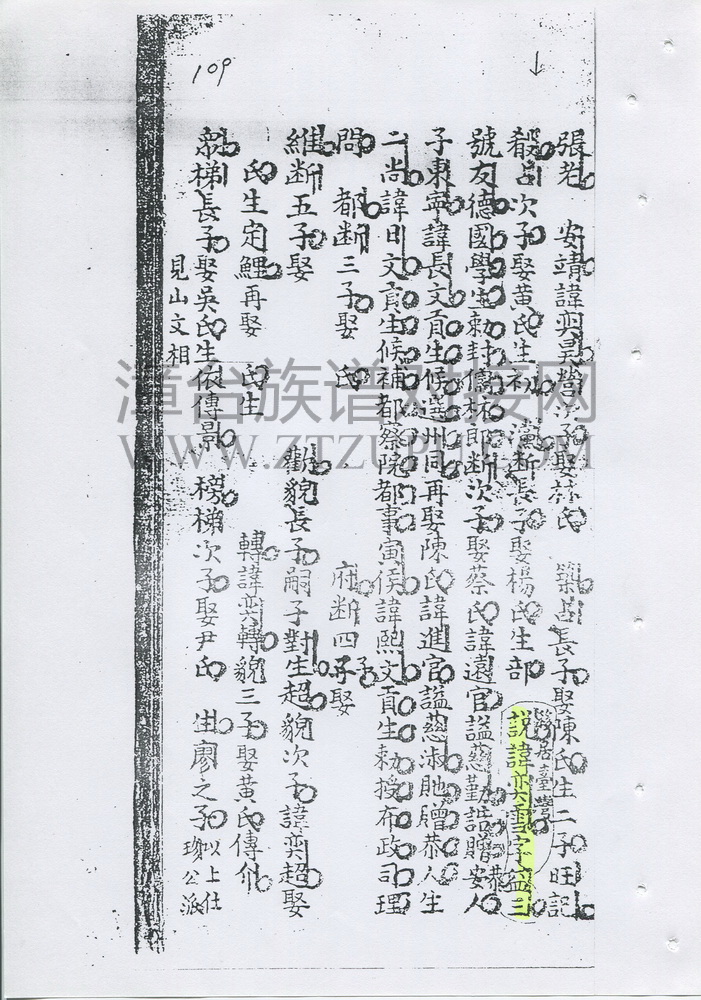 109
張老 安靖諱奕昊 次子娶林氏 築占長子娶陳氏生二子旺記
占次子娶黃氏生初 斷長子娶楊氏生部 說諱奕雪字益三
移居臺灣
號友德國學生勅封儒林郎斷次子娶蔡氏諱遠官謚慈勤誥贈安人
恭
子東寧諱長文貢生候選州同再娶陳氏諱進官謚慈淑貤贈恭人生
二尚諱日文貢生候補都察院都事寅侯諱熙文貢生勅授布政司理
問 都斷三子娶 氏 府斷四子娶
維斷五子娶 歡貌長子嗣子對生超貌次子諱奕超娶
氏生定鯉再娶 氏生 轉諱奕轉貌三子娶黃氏傳介
梯長子娶吳氏生依傳景 榜梯次子娶尹氏 生廖之子以上仕
見山文相 珍公派
漳台族谱对接网
WWW.ZTZUPU.COM